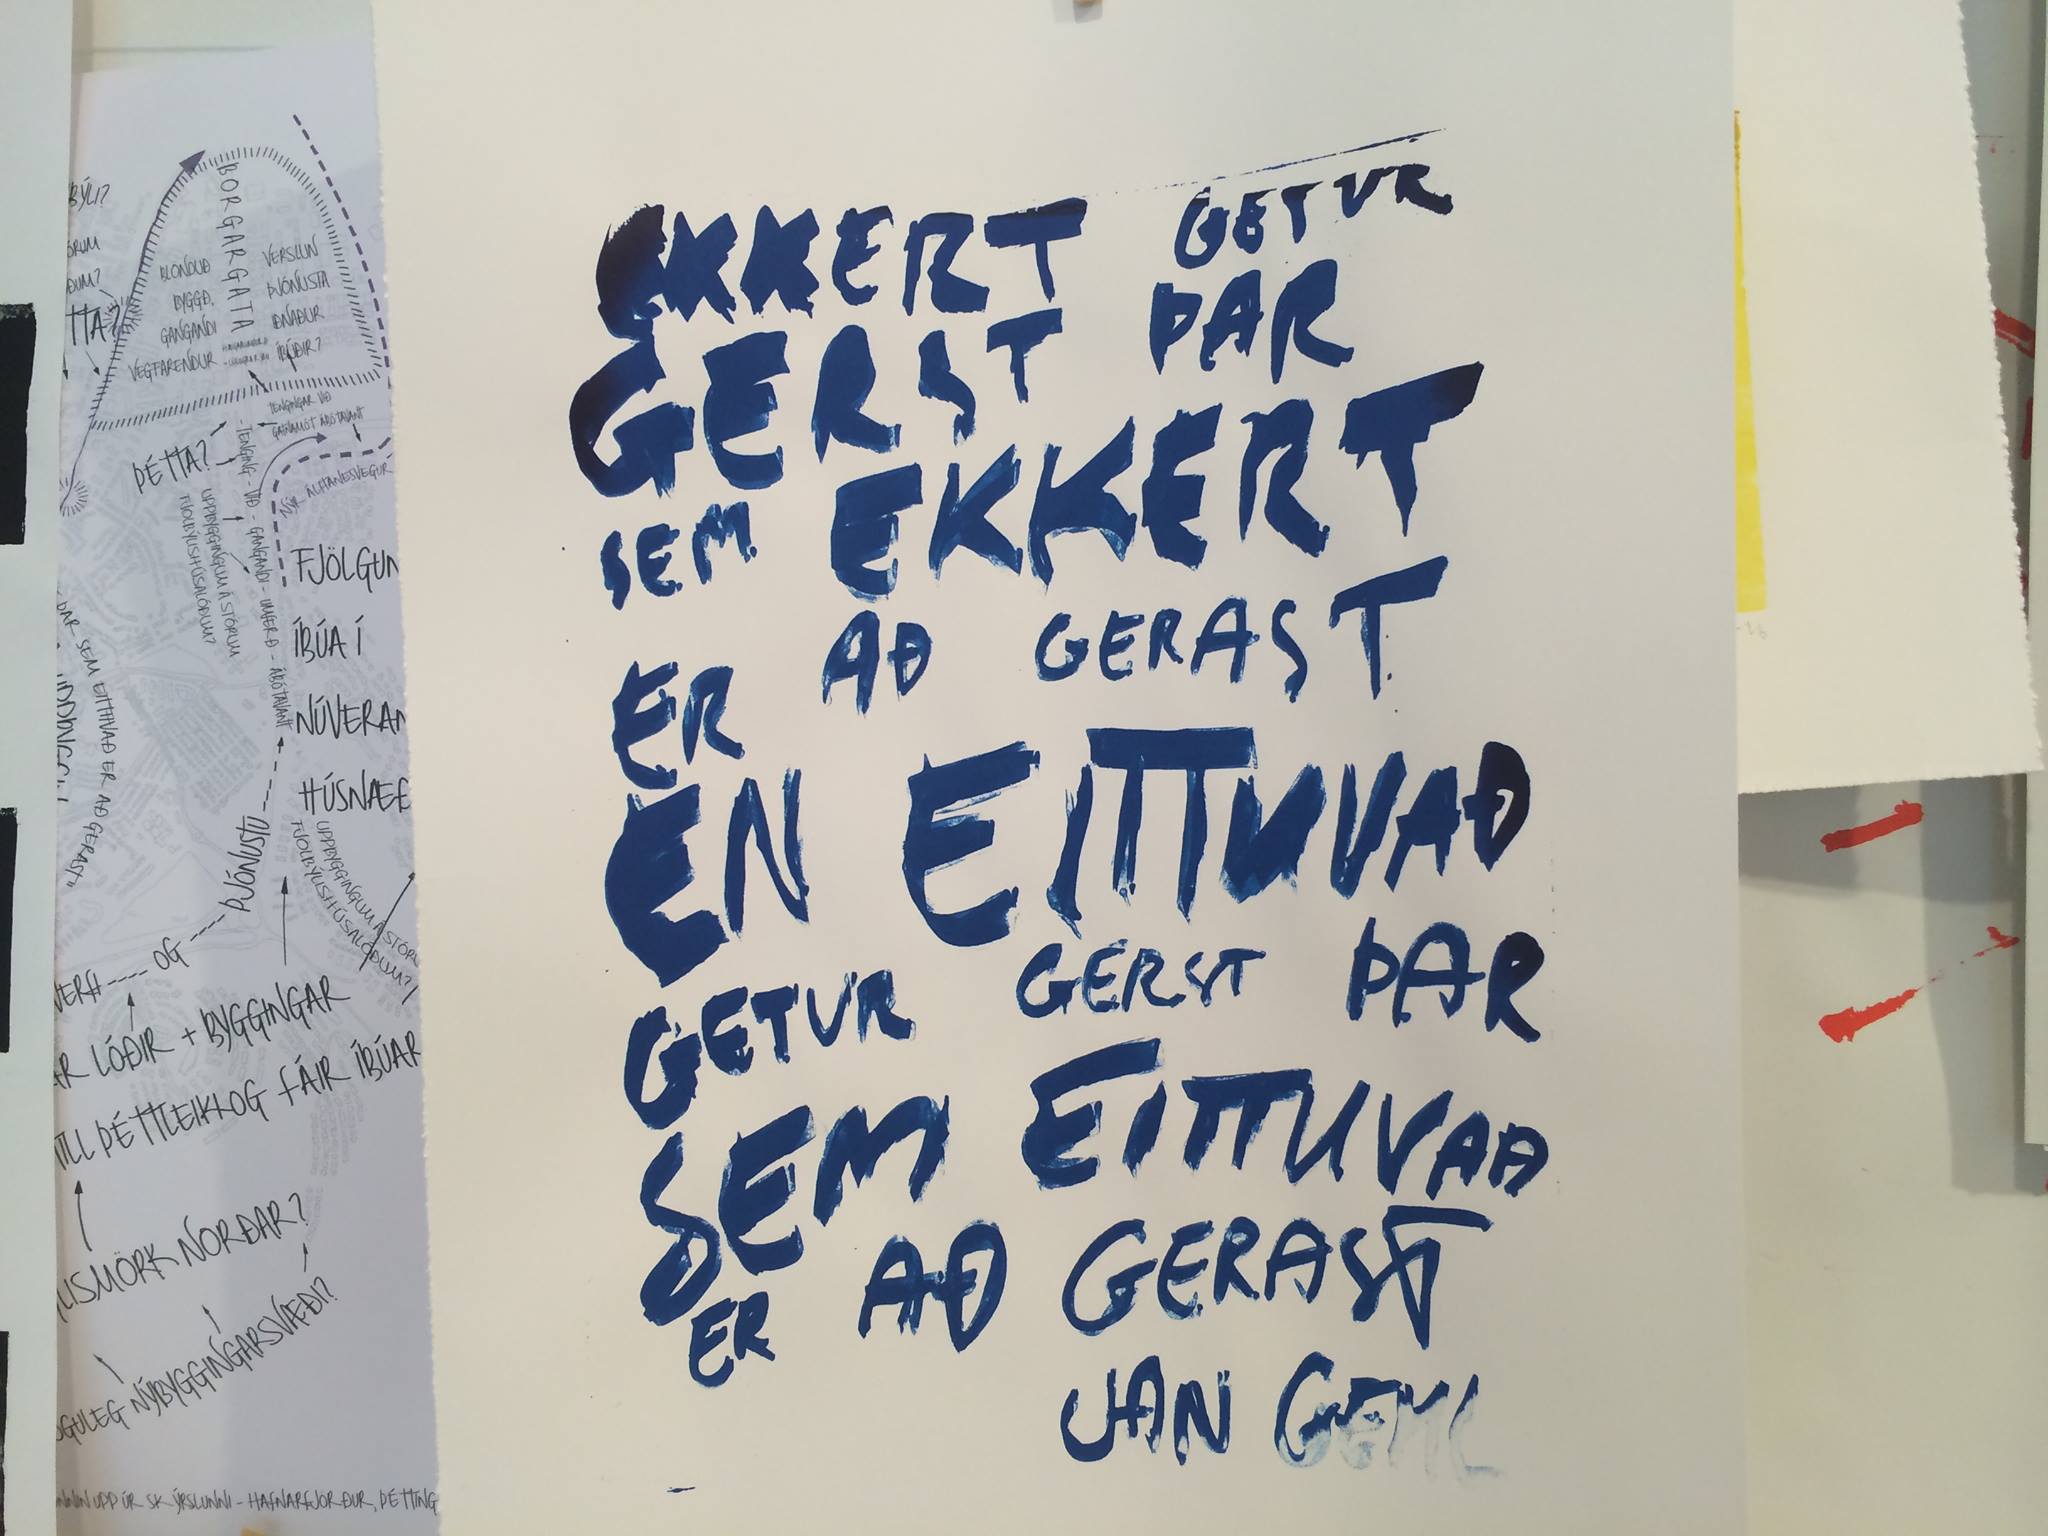 BÝLI?
BORGARGATA
BLÖNDUÐ
BYGGÐ,
GANGANDI
VEGFARENDUR
VERSLUN
ÞJÓNUSTA
IÐNAÐUR
ÍBÚÐIR?
TENGINGAR VIÐ
GATNAMÓT ÁBÓTAVANT
ÞÉTTA?
-TENGING - VIÐ - GANGANDI - UMFERÐ - ÁBÓTAVANT
NÝR ÁLFTANESVEGUR
UPPBYGGINGUM Á STÓRUM
FJÖLBÝLISHÚSALÓÐUM?
FJÖLGUN
ÍBÚA Í
NÚVERAN
HÚSNÆÐ
ÞAR SEM EITTHVAÐ ER AÐ GERAST"
UPPBYGGINGUM Á STÓRU
FJÖLBÝLISHÚSALÓÐUM?
VERA ---- OG ---- ÞJÓNUSTU
AR LÓÐIR + BYGGINGAR
TILL ÞÉTTLEIKI OG FÁIR ÍBÚAR
LISMÖRK NORÐAR?
GULEG NÝBYGGINGARSVÆÐI?
UNNIN UPP ÚR SKÝRSLUNNI - HAFNARFJÖRÐUR, ÞÉTTING
EKKERT GETUR
GERST ÞAR
SEM EKKERT
ER AÐ GERAST
EN EITTHVAÐ
GETUR GERST ÞAR
SEM EITTHVAÐ
ER AÐ GERAST
JAN GEHL